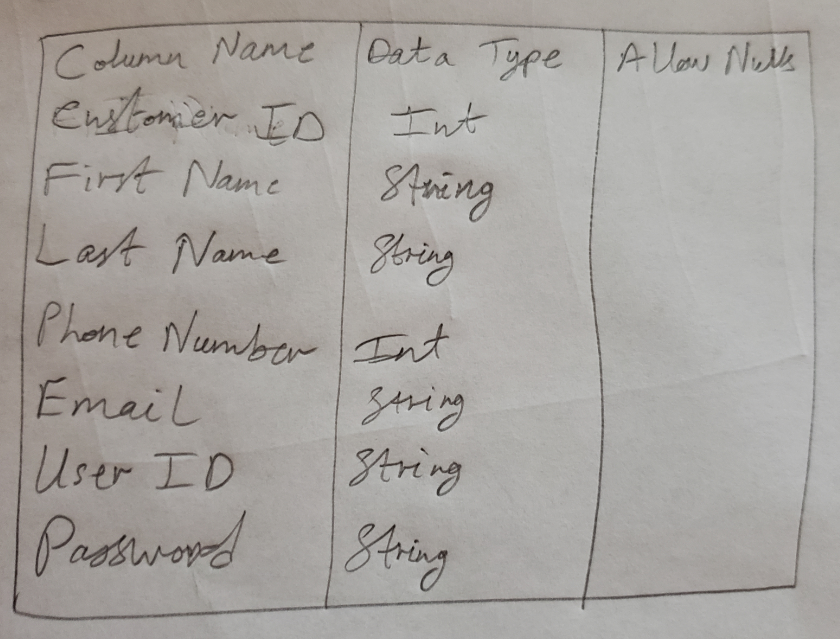 Column Name Data Type Allow Nulls
Customer ID Int
First Name String
Last Name String
Phone Number Int
Email String
User ID String
Password String